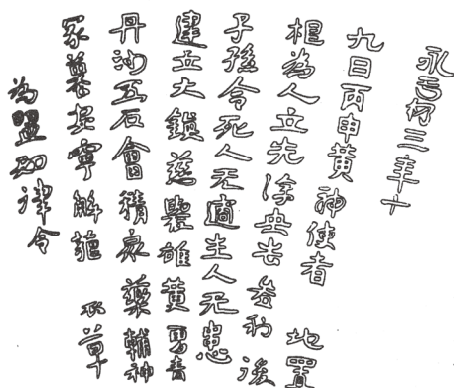 永初三年十
九日丙申黄神使者 地置
根為人立先除央去咎利後
子孫令死人无適生人无患
建立大鎮慈礜雄黄曾青
丹沙五石會精衆藥輔神
冢墓安寧解 草
為盟如律令